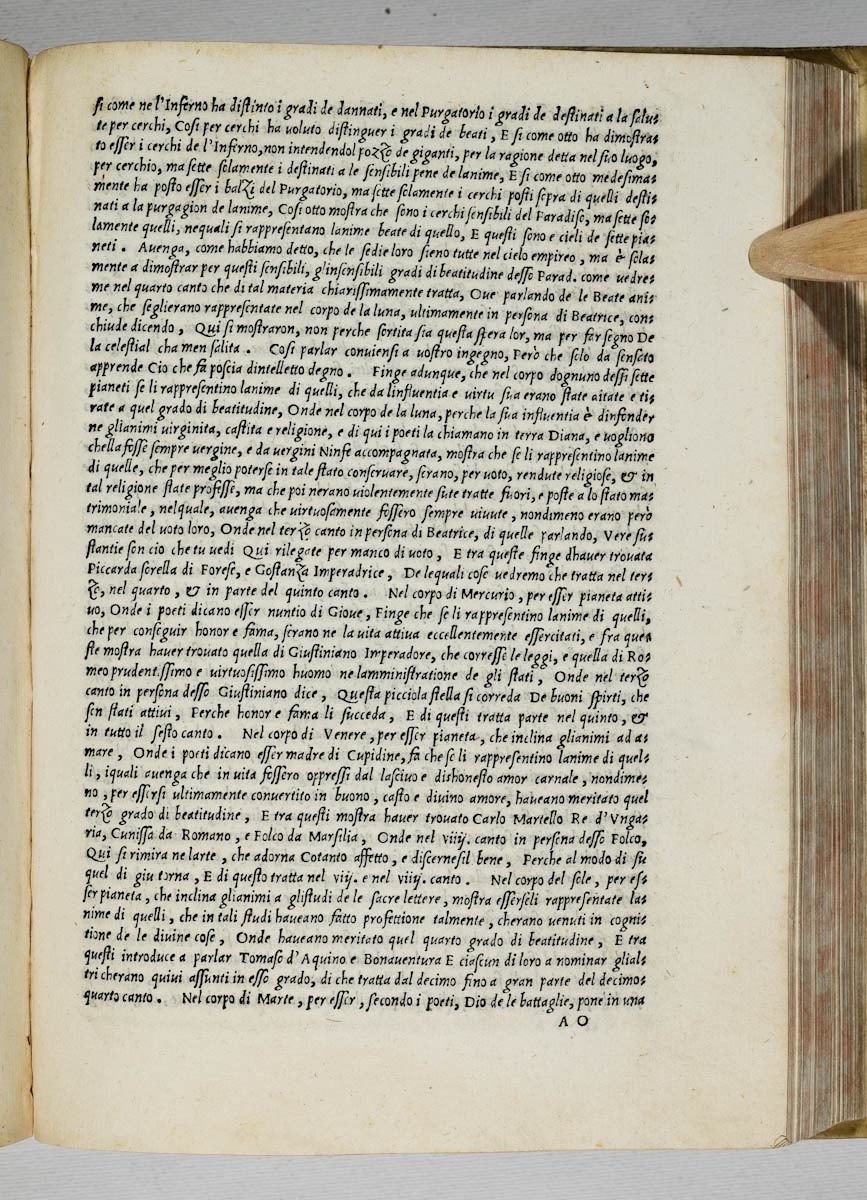 si come ne l'Inferno ha distinto i gradi de dannati, e nel Purgatorio i gradi de destinati a la salu-
te per cerchi, Cosi per cerchi ha voluto distinguer i gradi de beati, E si come otto ha dimostra-
to esser i cerchi de l'Inferno, non intendendol pozzo de giganti, per la ragione detta nel suo luogo,
per cerchio, ma sette solamente i destinati a le sensibili pene de lanime, E si come otto medesima-
mente ha posto esser i balzi del Purgatorio, ma sette solamente i cerchi posti sopra di quelli desti-
nati a la purgagion de lanime, Cosi otto mostra che sono i cerchi sensibili del Paradiso, ma sette so-
lamente quelli, nequali si rappresentano lanime beate di quello, E questi sono e cieli de sette pia-
neti. Auenga, come habbiamo detto, che le sedie loro sieno tutte nel cielo empireo, ma è sola-
mente a dimostrar per questi sensibili, gl'insensibili gradi di beatitudine desso Parad. come uedre-
me nel quarto canto che di tal materia chiarissimamente tratta, Oue parlando de le Beate ani-
me, che seglierano rappresentate nel corpo de la luna, ultimamente in persona di Beatrice, con-
chiude dicendo, Qui si mostraron, non perche sortita sia questa spera lor, ma per far segno De
la celestial cha men salita. Cosi parlar conuiensi a uostro ingegno, Però che solo da sensato
apprende Cio che fa poscia dintelletto degno. Finge adunque, che nel corpo dognuno dessi sette
pianeti se li rappresentino lanime di quelli, che da linfluentia e uirtu sua erano state aitate e ti-
rate a quel grado di beatitudine, Onde nel corpo de la luna, perche la sua influentia è dinfonder
ne glianimi uirginita, castita e religione, e di qui i poeti la chiamano in terra Diana, e uogliono
chella fosse sempre uergine, e da uergini Ninfe accompagnata, mostra che se li rappresentino lanime
di quelle, che per meglio poterse in tale stato conseruare, serano, per uoto, rendute religiose, & in
tal religione state professe, ma che poi nerano uiolentemente sute tratte fuori, e poste a lo stato ma-
trimoniale, nelquale, auenga che uirtuosamente fossero sempre uiuute, nondimeno erano però
mancate del uoto loro, Onde nel terzo canto in persona di Beatrice, di quelle parlando, Vere su-
stantie son cio che tu uedi Qui rilegate per manco di uoto, E tra queste finge dhauer trouata
Piccarda sorella di Forese, e Gostanza Imperadrice, De lequali cose uedremo che tratta nel ter-
zo, nel quarto, & in parte del quinto canto. Nel corpo di Mercurio, per esser pianeta atti-
uo, Onde i poeti dicano esser nuntio di Gioue, Finge che se li rappresentino lanime di quelli,
che per conseguir honor e fama, serano ne la uita attiua eccellentemente essercitati, e fra que-
ste mostra hauer trouato quella di Giustiniano Imperadore, che corresse le leggi, e quella di Ro-
meo prudentissimo e uirtuosissimo huomo ne lamministratione de gli stati, Onde nel terzo
canto in persona desso Giustiniano dice, Questa picciola stella si correda De buoni spirti, che
son stati attiui, Perche honor e fama li succeda, E di questi tratta parte nel quinto, &
in tutto il sesto canto. Nel corpo di Venere, per esser pianeta, che inclina glianimi ad a-
mare, Onde i poeti dicano esser madre di Cupidine, fa che se li rappresentino lanime di quel-
li, iquali auenga che in uita fossero oppressi dal lasciuo e dishonesto amor carnale, nondime-
no, per essersi ultimamente conuertito in buono, casto e diuino amore, haueano meritato quel
terzo grado di beatitudine, E tra questi mostra hauer trouato Carlo Martello Re d'Vnga-
ria, Cunissa da Romano, e Folco da Marsilia, Onde nel viiij. canto in persona desso Folco,
Qui si rimira ne larte, che adorna Cotanto affetto, e discernesil bene, Perche al modo di su
quel di giu torna, E di questo tratta nel viij. e nel viiij. canto. Nel corpo del sole, per es-
ser pianeta, che inclina glianimi a glistudi de le sacre lettere, mostra esserseli rappresentate la-
nime di quelli, che in tali studi haueano fatto profettione talmente, cherano uenuti in cogni-
tione de le diuine cose, Onde haueano meritato quel quarto grado di beatitudine, E tra
questi introduce a parlar Tomaso d'Aquino e Bonauentura E ciascun di loro a nominar glial-
tri cherano quiui assunti in esso grado, di che tratta dal decimo fino a gran parte del decimo-
quarto canto. Nel corpo di Marte, per esser, secondo i poeti, Dio de le battaglie, pone in una
A O